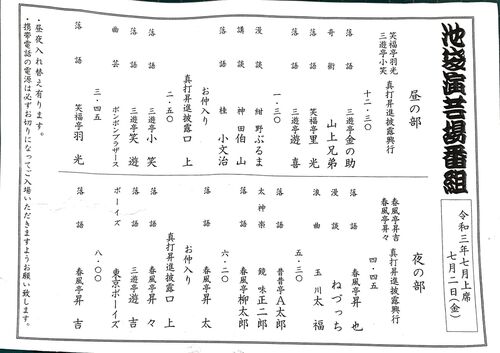 池袋演芸場番組
令和三年七月上席
七月二日(金)
昼の部
笑福亭羽光
三遊亭小笑
真打昇進披露興行
十二・三〇
落語 三遊亭金の助
奇術 山上兄弟
落語 笑福亭里光
落語 三遊亭遊喜
一・三〇
漫談 紺野ぶるま
講談 神田伯山
落語 桂小文治
お仲入り
真打昇進披露口上
二・五〇
落語 三遊亭小笑
落語 三遊亭笑遊
曲芸 ボンボンブラザース
落語 笑福亭羽光
三・四五
夜の部
春風亭昇吉
春風亭昇々
真打昇進披露興行
四・四五
落語 春風亭昇也
漫談 ねづっち
浪曲 玉川太福
五・三〇
落語 昔昔亭A太郎
太神楽 鏡味正二郎
落語 春風亭柳太郎
六・二〇
落語 春風亭昇太
お仲入り
真打昇進披露口上
落語 春風亭昇々
落語 三遊亭遊吉
ボーイズ 東京ボーイズ
落語 春風亭昇吉
八・〇〇
・昼夜入れ替え有ります。
・携帯電話の電源は必ずお切りになってご入場いただきますようお願い致します。